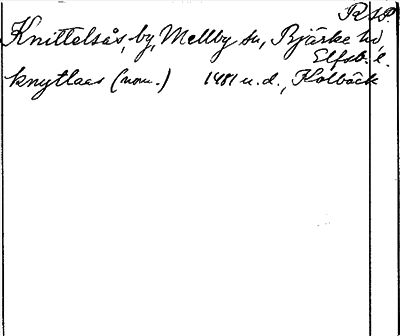 RAP
Knittelsås, by, Mellby sn, Bjärke hd,
Elfsb. l.
knytlaas (nom.) 1481 u.d., Kolbäck